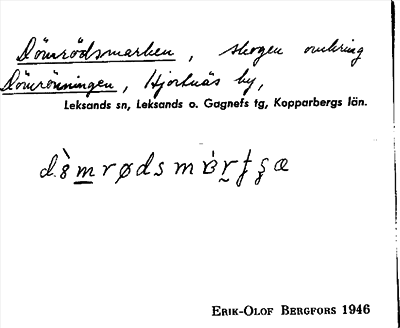 Dömrödsmarken, skogen omkring
Dömrönningen, Hjortnäs by,
Leksands sn, Leksands o. Gagnefs tg, Kopparbergs län.
ERIK-OLOF BERGFORS 1946